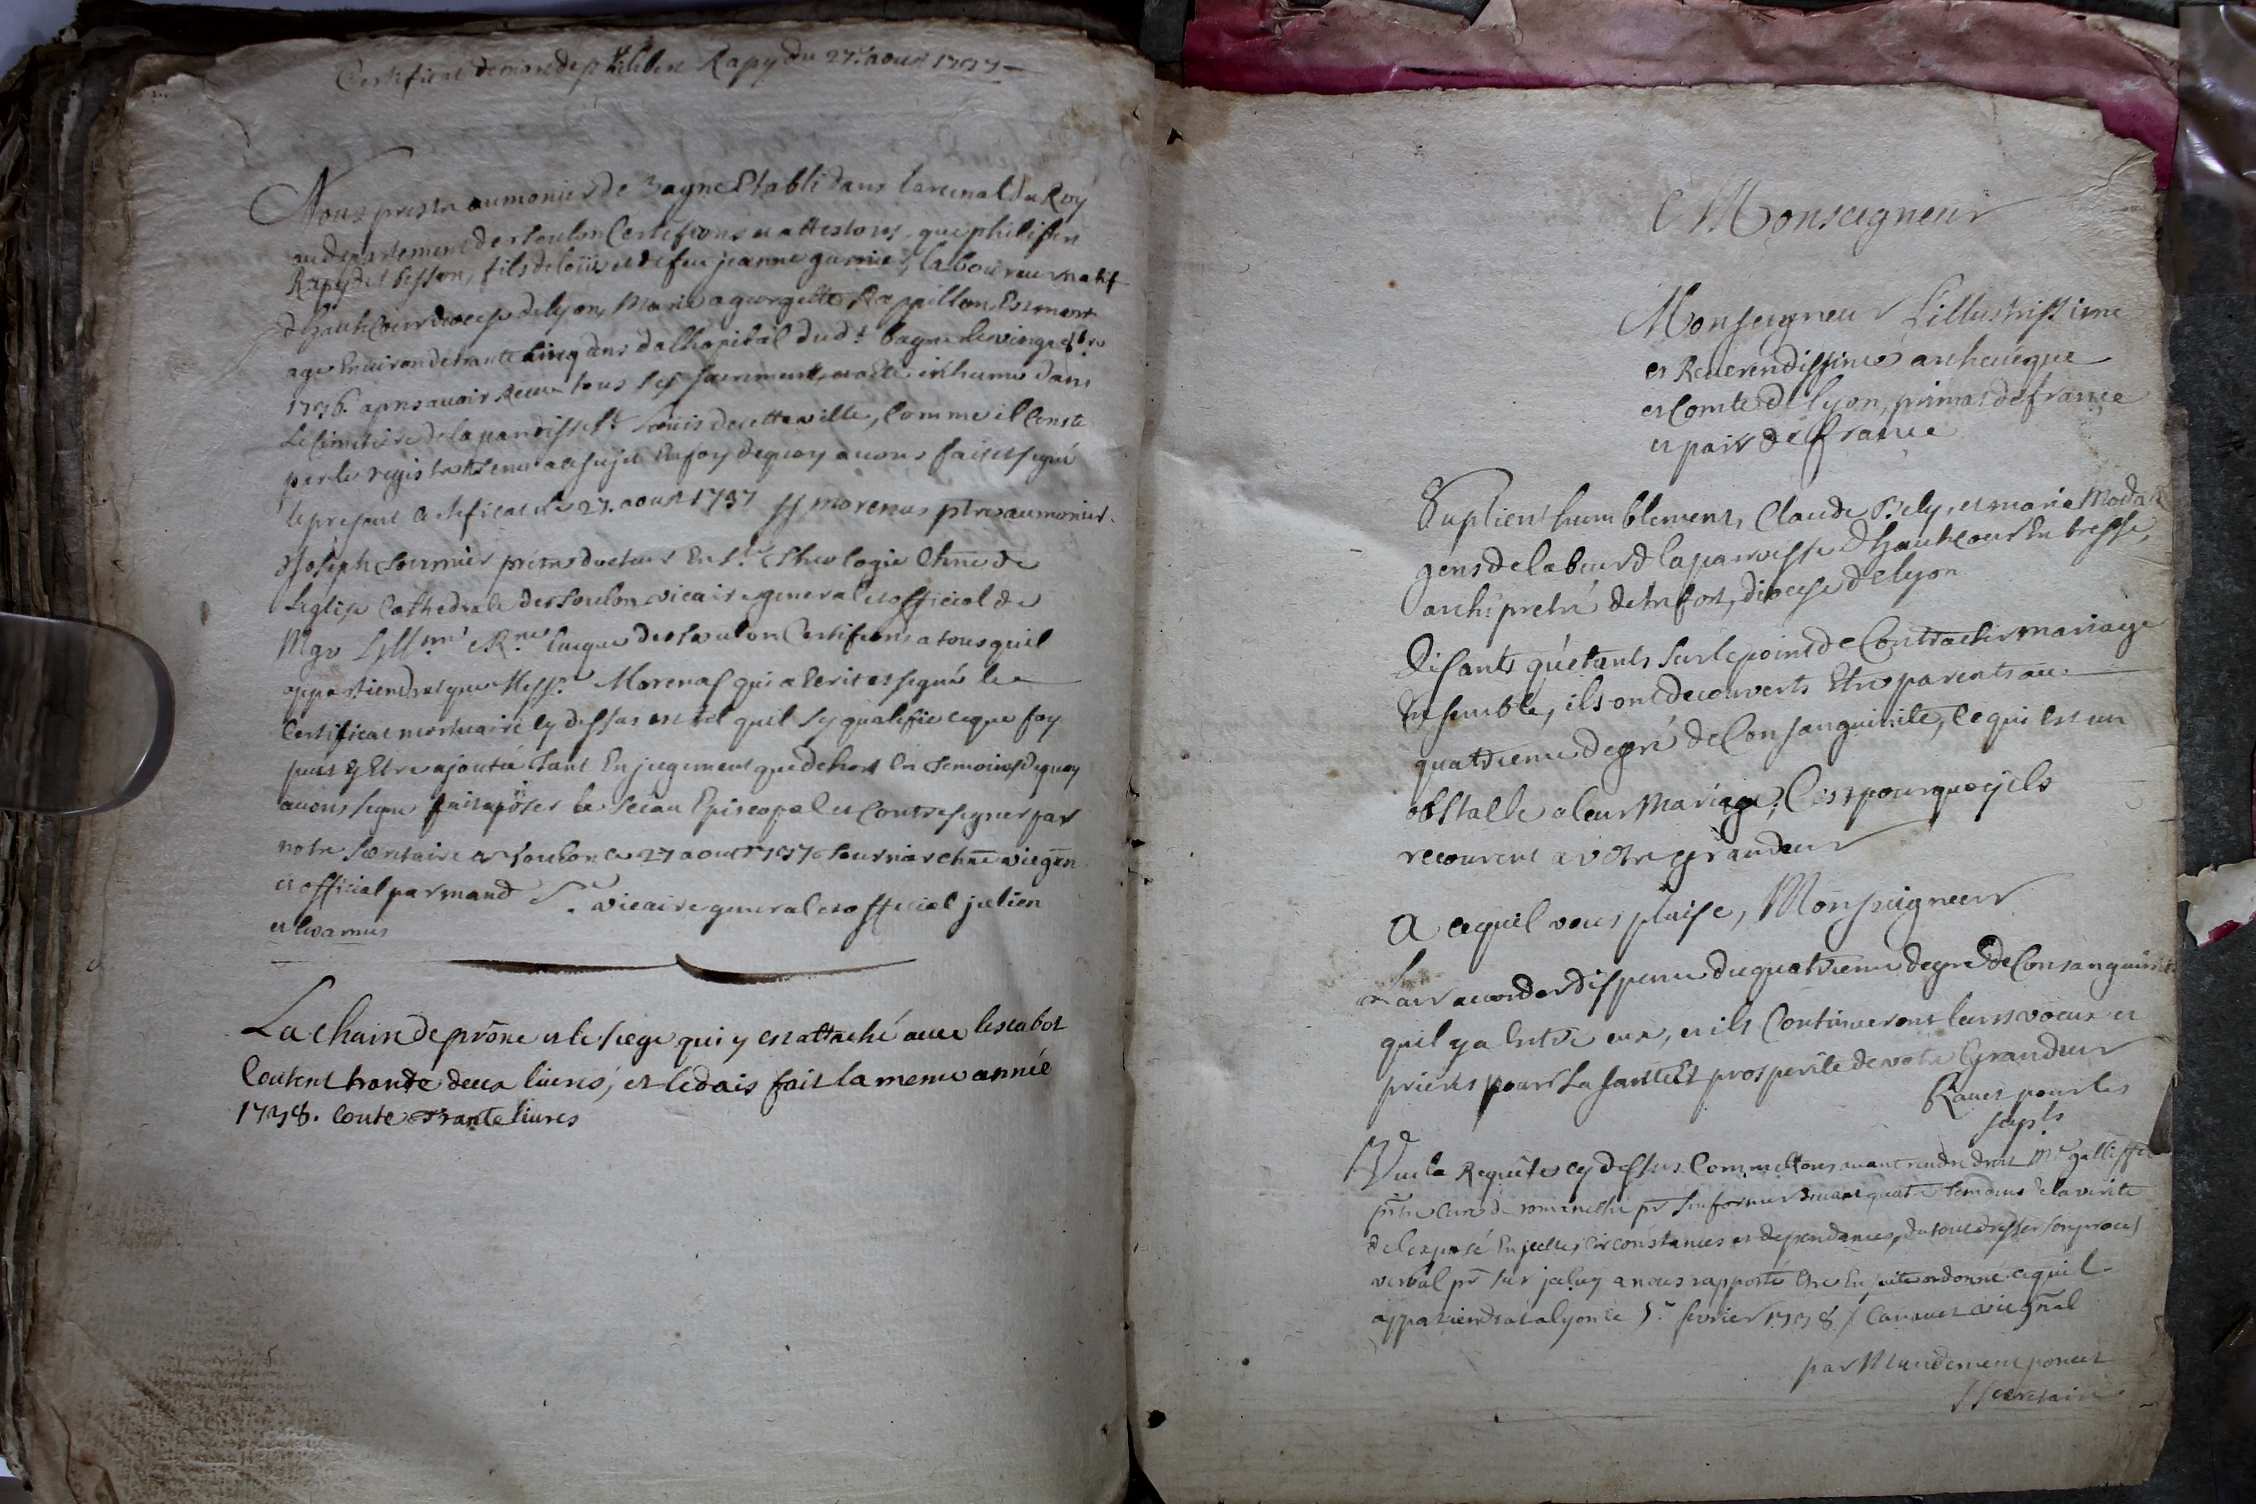 Certificat de mort de philibin Rapy du 27e. aoust 1737
Nous prestre aumonier de Bagne Etabli dans larcenal du Roy
au departement de toulon Certifions et attestons, que philibin
Rapy dit Besson, fils de loüis et de feu jeanne garnier, laboureur natif
d'hautecour diocese de lyon, Marié a georgette Rappillon, Est mort
age Environ de trante cinq ans a lhopital dud.t bagne le vingt 8bre
1736. apres avoir Receu tous les sacrements, et a été inhumé dans
le cimetiere de la parroisse St Loüis de cette ville, Comme il Conste
par le registre tenu a ce sujet En foy de quoy avons fait et signé
le present Certificat ce 27. aoust 1737 morenas ptre aumonier.
Joseph fournier prêtre docteur En s.te Theologie Chne de
Leglise Cathedrale de Toulon vicaire general et official de
Mgr Lill.me et R.me Eveque de Toulon Certifions a tous quil
appartiendra que Mess.re Morenas qui a Ecrit et signé le
Certificat mortuaire cy dessus est tel quil sy qualifie et que foy
peut y Etre ajoutée Tant En jugement que dehors En temoins de quoy
avons signé fait apposer le sceau Episcopal et Contresigner par
notre secretaire a Toulon ce 27 aout 1737 fournier chne vic gen
et official par mand vicaire general et official julien
La chaire de prône et le siege qui y est attaché avec lescabot
Coutent trante deux livres, et le dais fait la meme année
1738. Coute Trante livres
Monseigneur
Monseigneur Lillustrissime
et Reverendissime archevêque
et Comte de lyon, primat de france
et pair de france
Suplient humblement, Claude Bely, et marie Modas
gens de labeur de la parroisse d'hautecour En bresse,
archiprêtré de trefort, diocese de lyon
Disants qu'etants sur le point de Contracter mariage
Ensemble, ils ont decouverts Etre parents au
quatrieme degré de Consanguinité, ce qui Est un
obstacle a leur Mariage, C'est pourquoy ils
recourent a votre grandeur
A ce quil vous plaise, Monseigneur
Leur accorder dispense du quatrieme degré de Consanguinité
quil y a Entre eux, et ils Continueront leurs voeux et
prieres pour La santé Et prosperité de votre Grandeur
Ravet pour les
supls
Vu la Requête cy dessus Commettons avant rendre droit Mre galliffet
prêtre curé de romaneche pr sinformer devant quatre temoins de la verité
de lexposé En jcelle, circonstances et dependances, du tout dresser son procez
verbal pr sur jceluy a nous rapporté Etre En suite ordonné ce quil
appartiendra a lyon ce 5.e fevrier 1738 / Navarre vic gnal
par Mandement poncet
secretaire